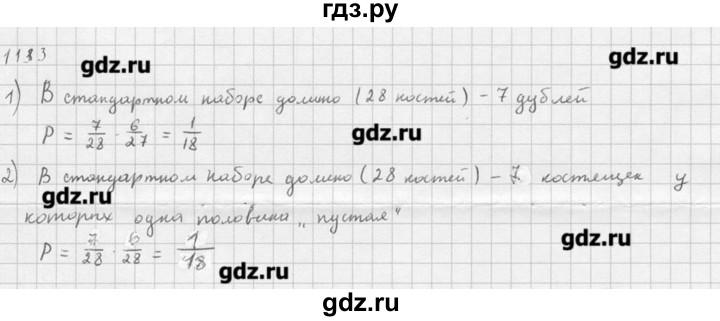 гдз.ру
1183
gdz.ru
gdz.ru
1) В стандартном наборе домино (28 костей) - 7 дублей
P = 7/28 · 6/27 = 1/18
gdz.ru
2) В стандартном наборе домино (28 костей) - 7 костящек у
gdz.ru
которих одна половина „пустая“
P = 7/28 · 6/28 = 1/18
gdz.ru
gdz.ru
gdz.ru